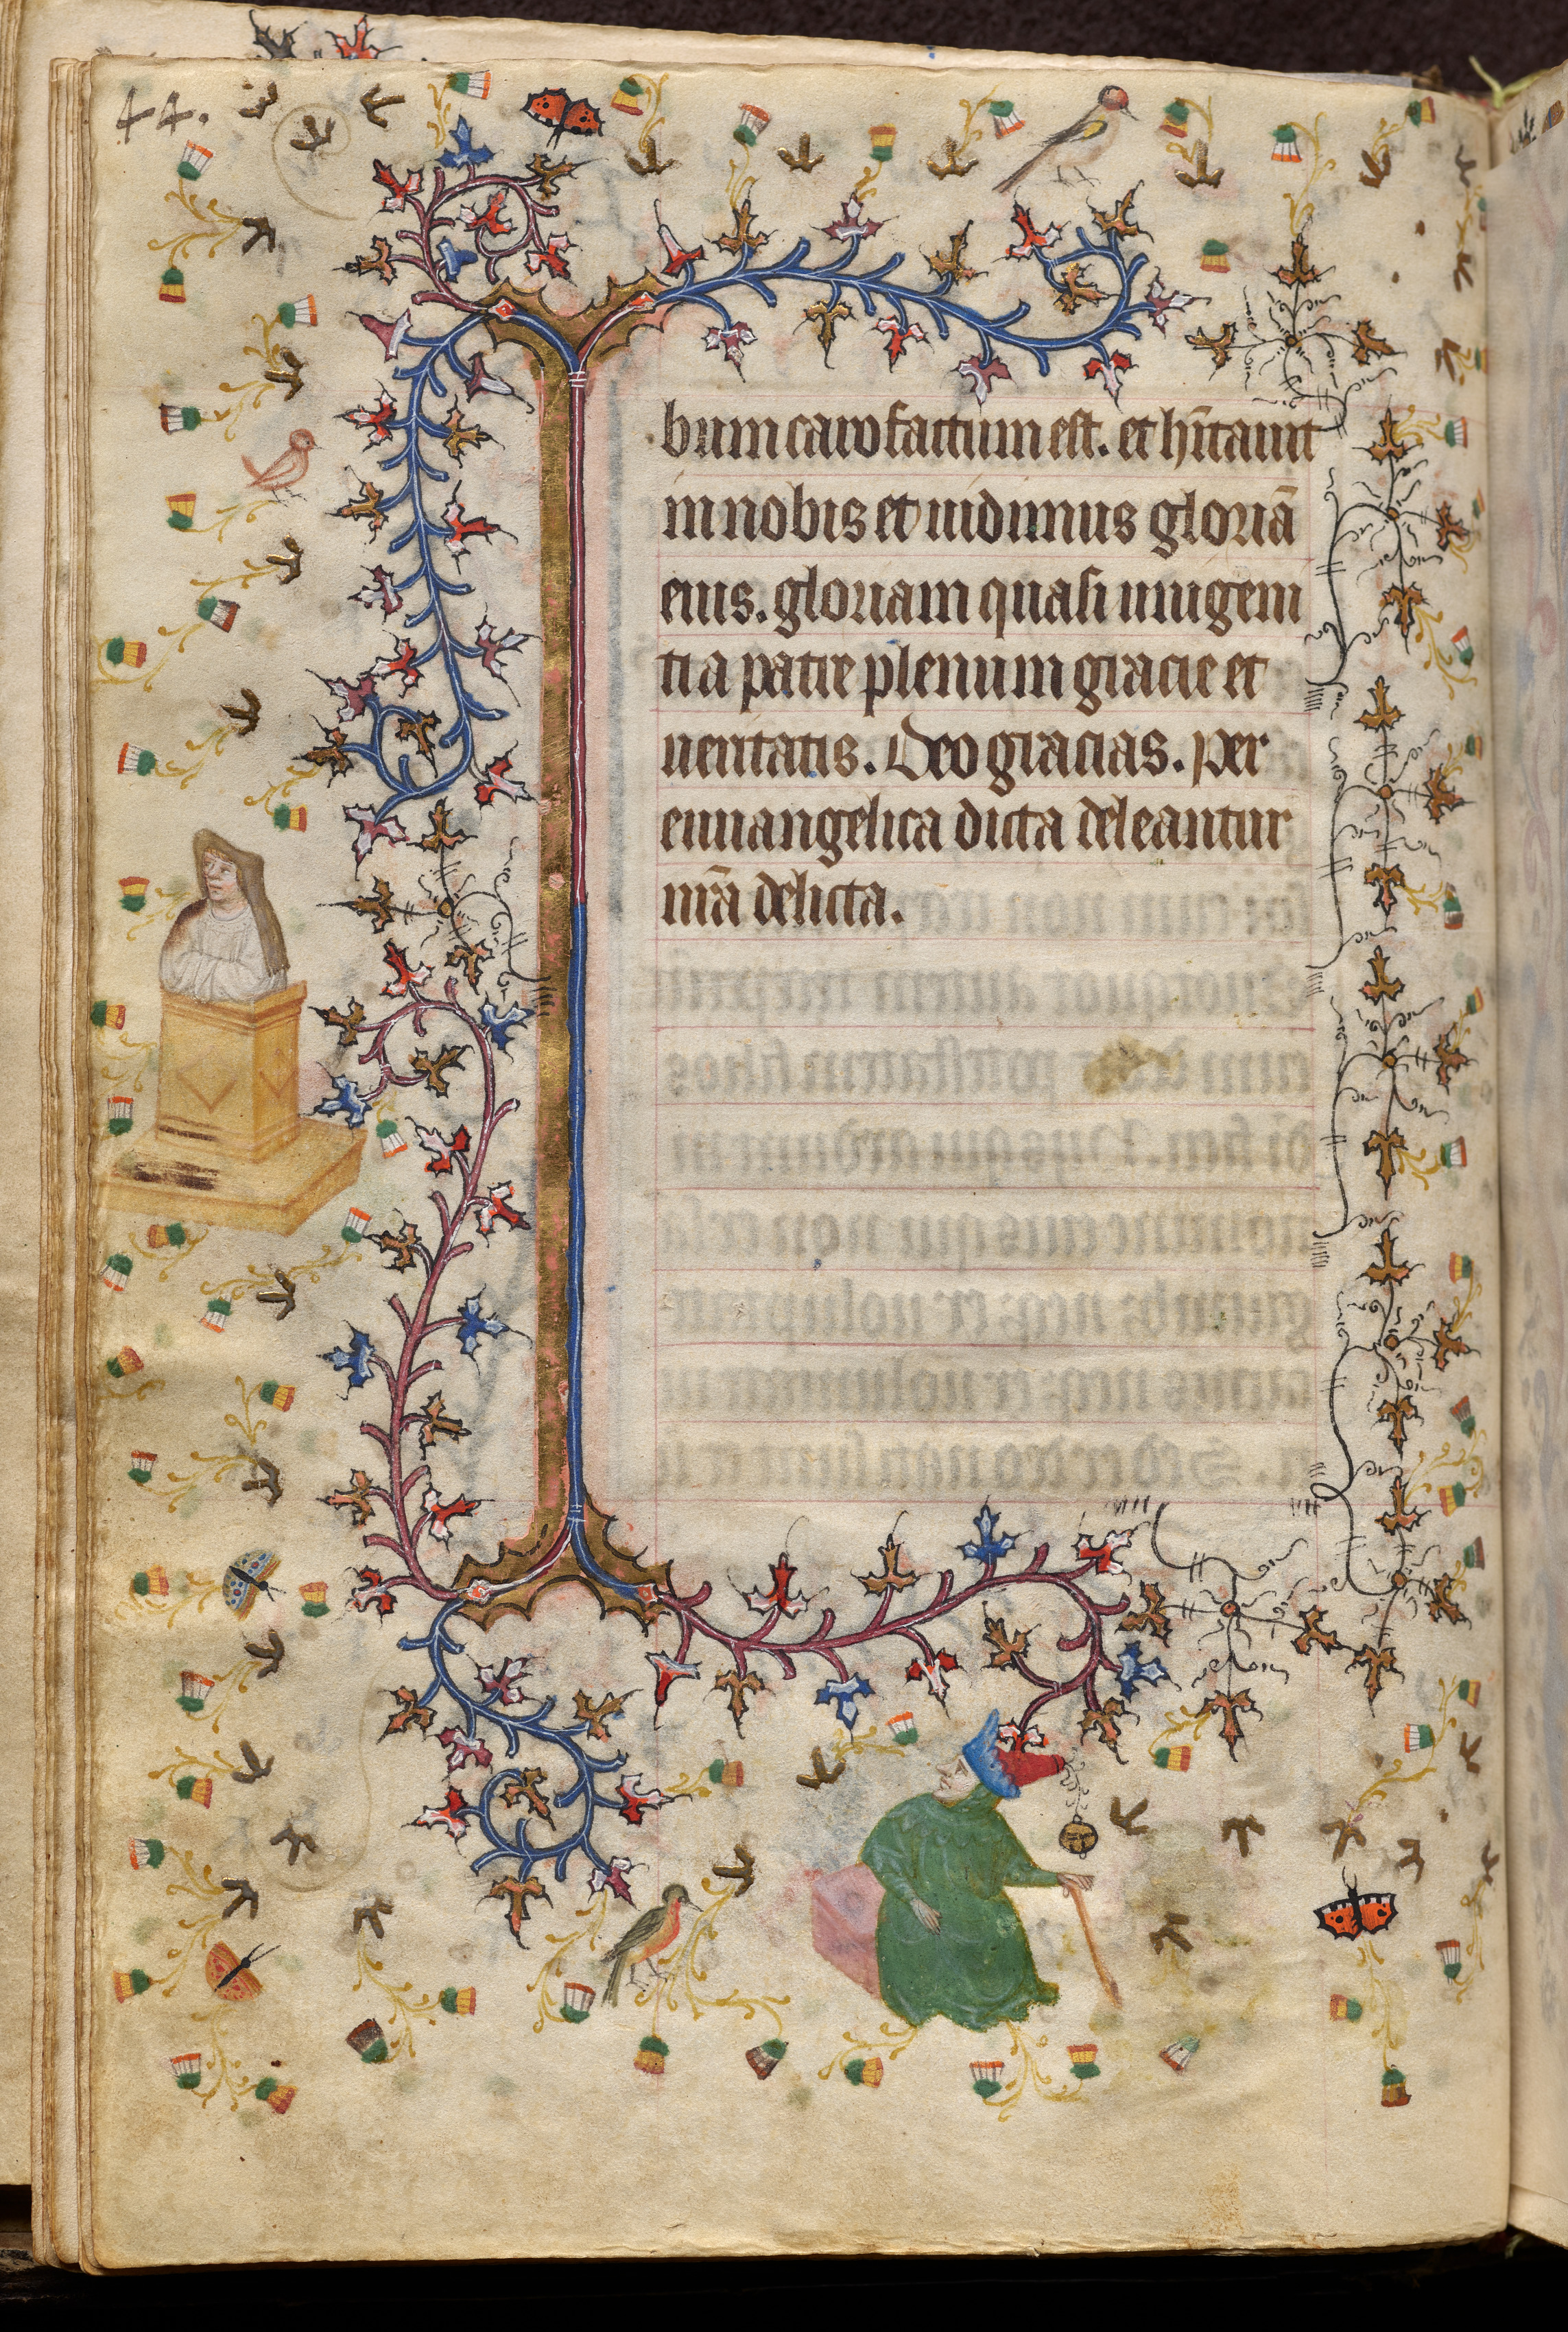 44.
bum caro factum est. et hītauit
in nobis et uidimus gloriā
eius. gloriam quasi unigeni
ti a patre plenum gracie et
ueritatis. Deo gracias. per
euuangelica dicta deleantur
nrā delicta.